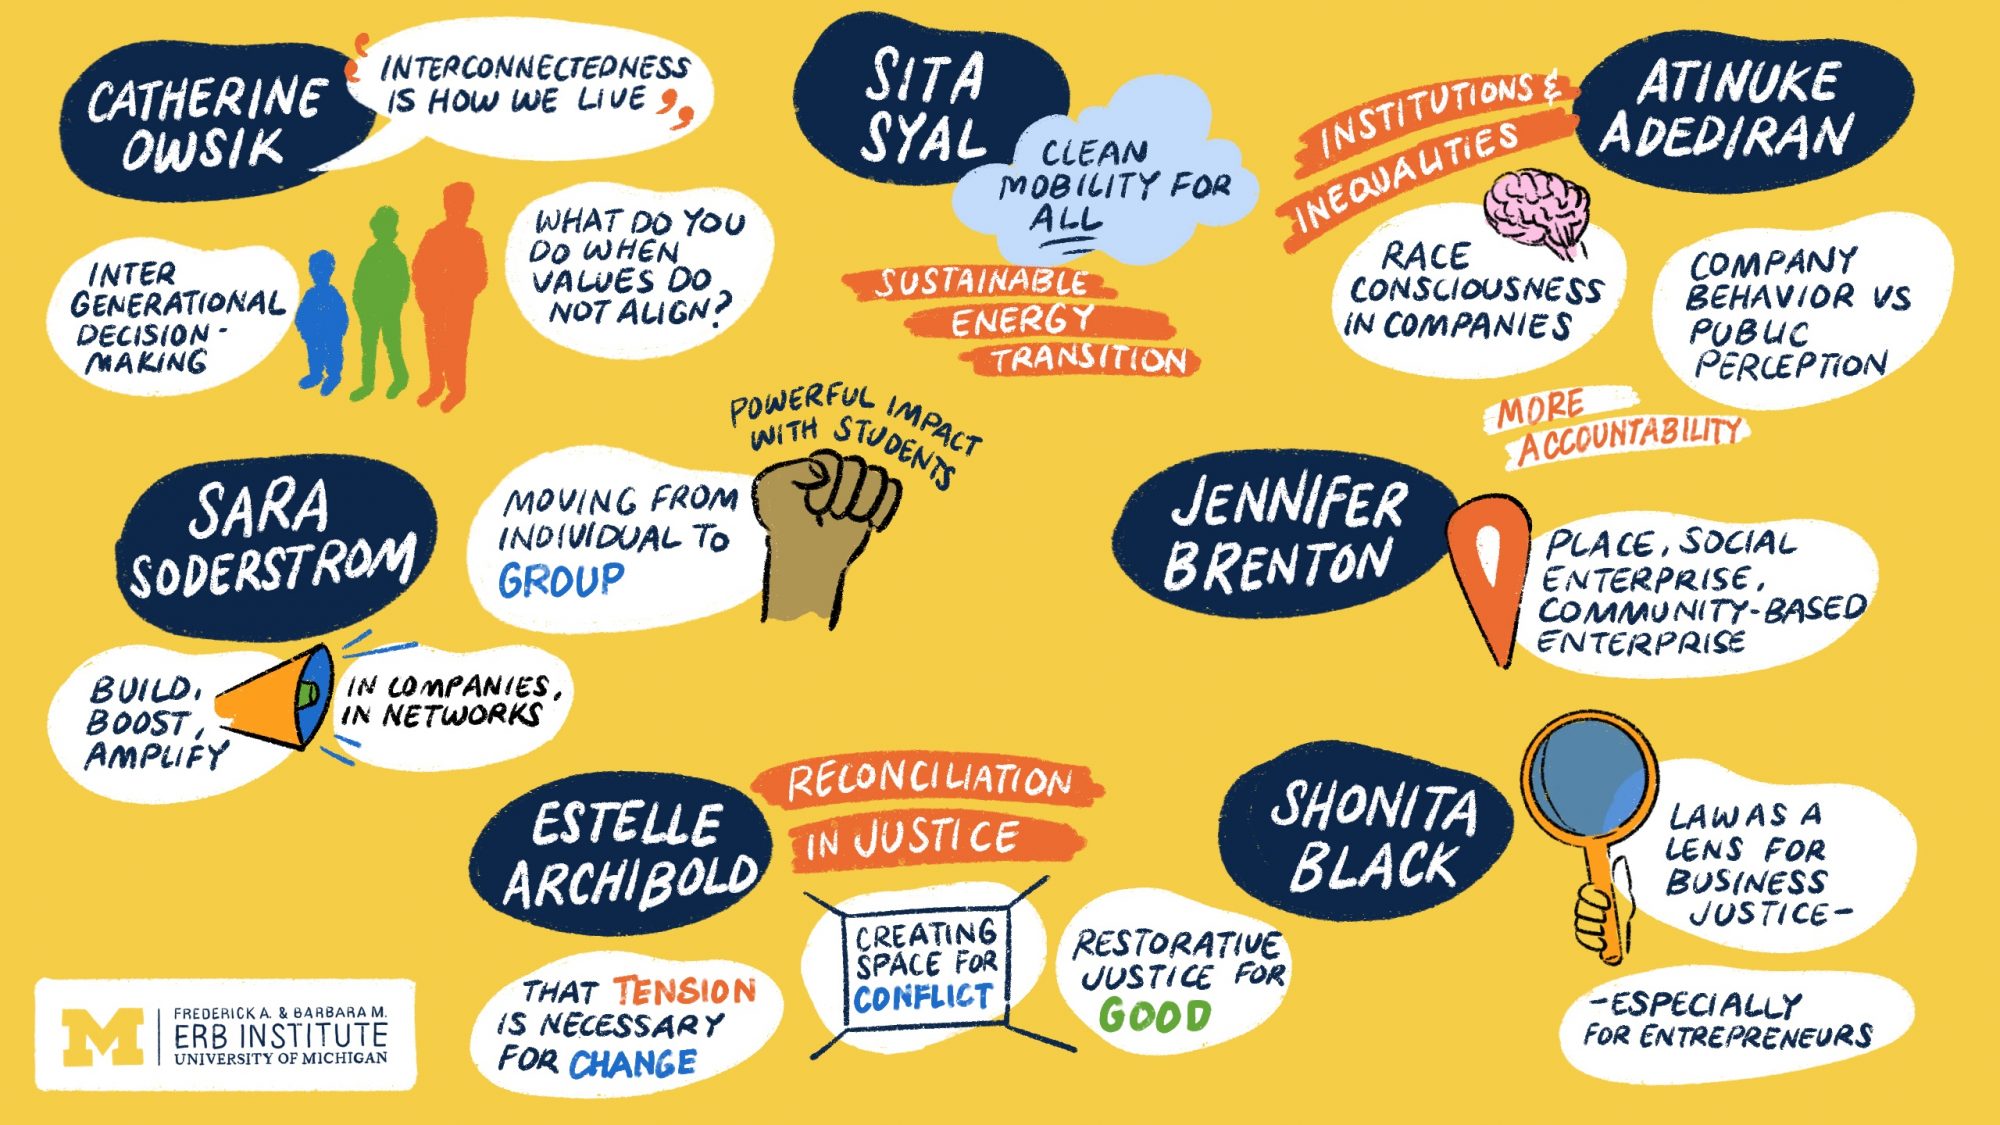 CATHERINE
OWSIK
INTERCONNECTEDNESS
IS HOW WE LIVE
INTER
GENERATIONAL
DECISION-
MAKING
WHAT DO YOU
DO WHEN
VALUES DO
NOT ALIGN?
SITA
SYAL
CLEAN
MOBILITY FOR
ALL
SUSTAINABLE
ENERGY
TRANSITION
INSTITUTIONS &
INEQUALITIES
ATINUKE
ADEDIRAN
RACE
CONSCIOUSNESS
IN COMPANIES
COMPANY
BEHAVIOR VS
PUBLIC
PERCEPTION
MORE
ACCOUNTABILITY
SARA
SODERSTROM
MOVING FROM
INDIVIDUAL TO
GROUP
POWERFUL IMPACT
WITH STUDENTS
BUILD,
BOOST,
AMPLIFY
IN COMPANIES,
IN NETWORKS
JENNIFER
BRENTON
PLACE, SOCIAL
ENTERPRISE,
COMMUNITY-BASED
ENTERPRISE
ESTELLE
ARCHIBOLD
RECONCILIATION
IN JUSTICE
THAT TENSION
IS NECESSARY
FOR CHANGE
CREATING
SPACE FOR
CONFLICT
RESTORATIVE
JUSTICE FOR
GOOD
SHONITA
BLACK
LAW AS A
LENS FOR
BUSINESS
JUSTICE-
-ESPECIALLY
FOR ENTREPRENEURS
M
FREDERICK A. & BARBARA M.
ERB INSTITUTE
UNIVERSITY OF MICHIGAN